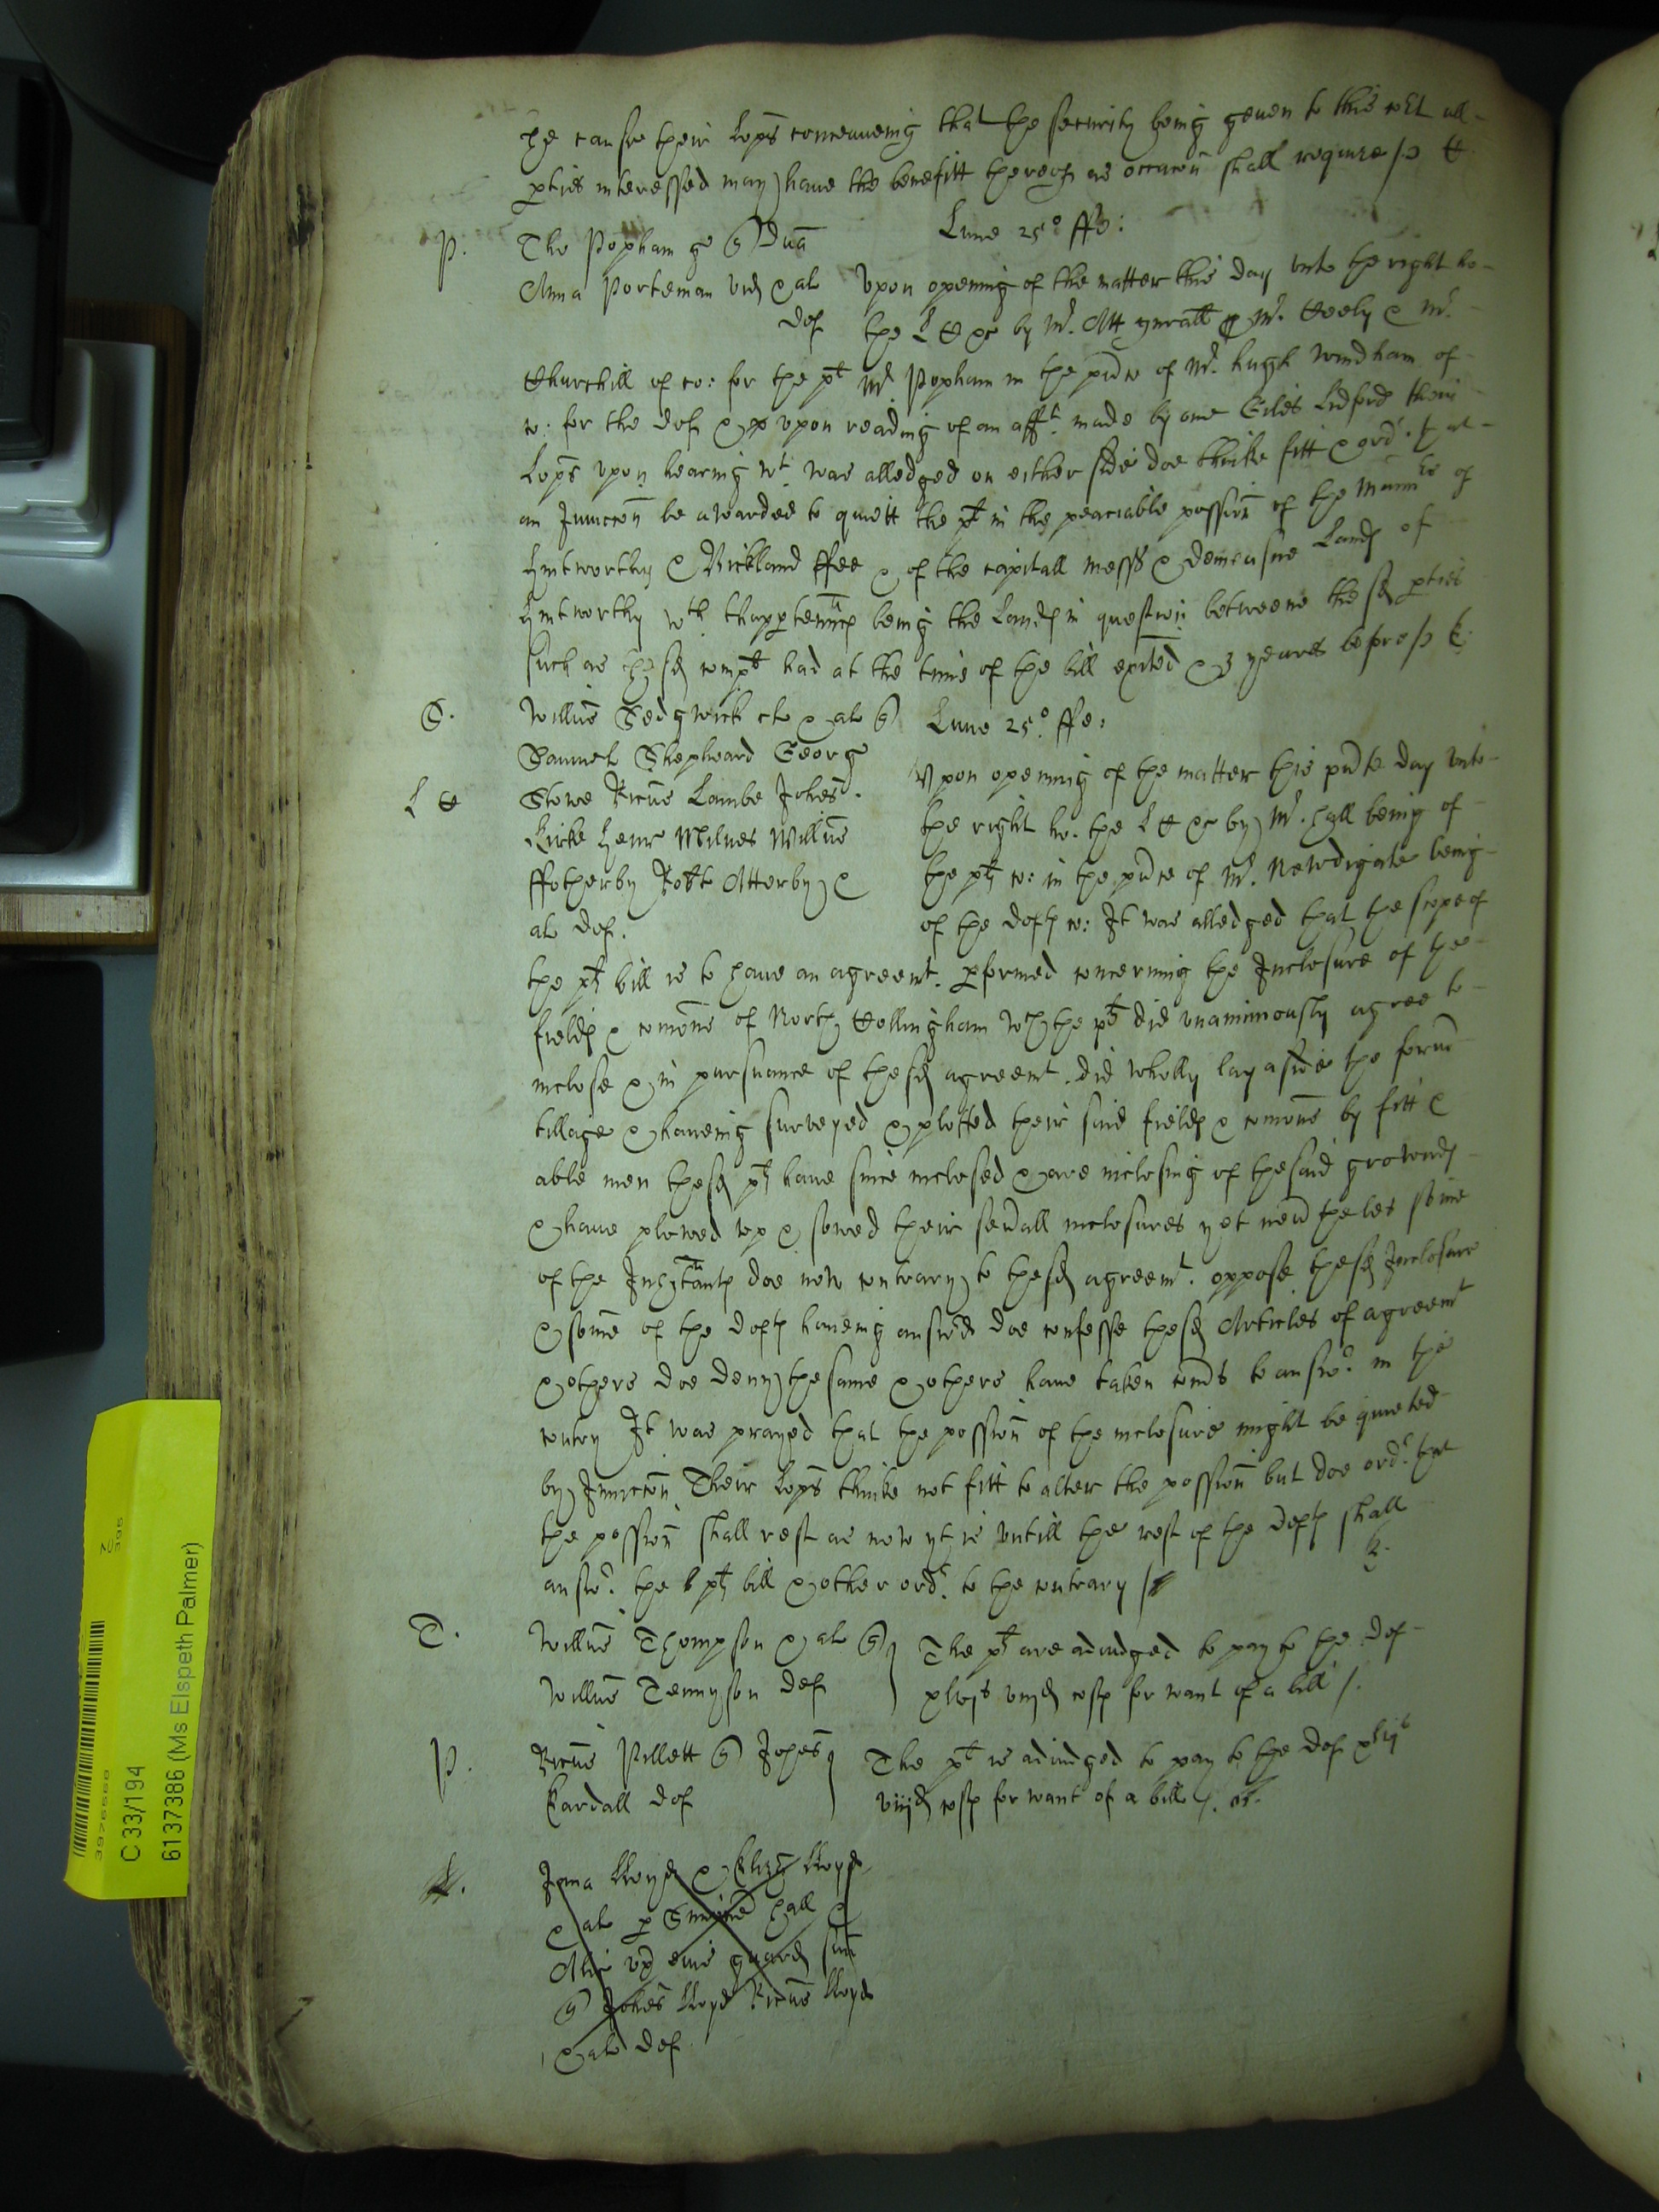 he cause their Lops conceuveing that the security being geuen to this Cot all
pties interessed may haue the benefitt thereof as occacon shall require /
P. Tho Popham ge q Dna
Lune 25° ffe:
Anna Porteman vid & al
def
Upon opening of the matter this day vnto the right ho
the L C &c by Mr. Att gnrall & Mr. & Mr.
Churchill of co: for the pt Mr Popham in the pnce of Mr. hugh windham of
co: for the def & vpon reading of an afft. made by one Giles Ledford their
Lops vpon hearing wt. was alledged on either side doe thinke fitt & ordr. that
an Iniuccon be awarded to quiett the pt in the peaciable possion of the Mannrs of
& Bickland ffee & of the capitall messe & demeasne Lands of
wth thapptennces being the Lands in question betweene the sd pties
such as the sd compt had at the time of the bill exited & 3 yeares before /
S. Willus Sedgwick cle & al q
Samuel Shepheard Georg
L C Stowe Ricus Lambe Johes
Kirke Henr Milnes Willus
ffotherby Robte Atterby &
al def.
Lune 25° ffe:
Vpon opening of the matter this pnte day vnto
the right ho. the L C &c by Mr. hall being of
the pts co: in the pnce of Mr. Newdigate being
of the defts co: It was alledged that the scope of
the pts bill is to haue an agreemt. pformed concerning the Inclosure of the
fields & comons of North Collingham wch the pts did vnanimously agree to
inclose & in pursuance of the sd agreemt. did wholly lay aside the form
tillage & haueing surveyed & plotted their said fields & comons by fitt &
able men the sd pts haue since inclosed & are inclosing of the said grownds
& haue plowed vp & sowed their seuall inclosures yet neutheles some
of the Inhitants doe now contrary to the sd agreemt. oppose the sd Inclosure
& some of the defts haueing answrd doe confesse the sd Articles of agreemt
& others doe deny the same & others haue taken comds to answr in the
contry It was prayed that the possion of the inclosure might be quieted
by Iniuccon Their Lops thinke not fitt to alter the possion but doe ordr. that
the possion shall rest as now yt is vntill the rest of the defts shall
answr. the pts bill & other ordr. to the contrary /
T. Willus Thompson & al q
Willus Tennyson def
The pts are adiudged to pay to the def
xlvjs viijd costs for want of a bill /.
P. Ricus Pillett q Johes
Kardall def
The pt is adiudged to pay to the def
viijd costs for want of a bill /.
Lloyd & Lloyd
& al p hall &
Alic vx eius guard
q Johes Lloyd Ricus Lloyd
& al def
3976568
C 33/194
6137386 (Ms Elspeth Palmer)